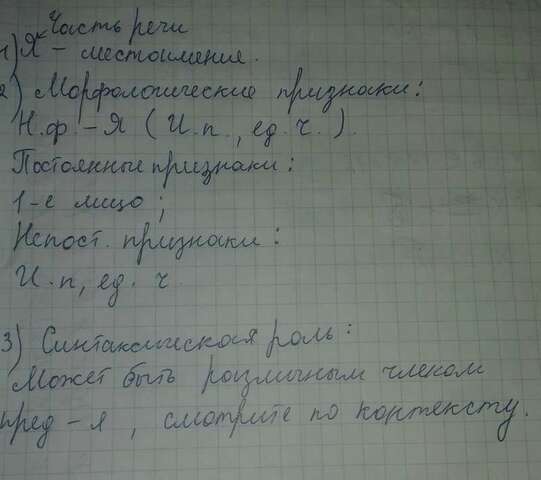 Часть речи
1) Я - местоимение.
2) Морфологические признаки:
Н.ф. - Я (И.п., ед.ч.).
Постоянные признаки:
1-е лицо;
Непост. признаки:
И.п, ед. ч
3) Синтаксическая роль:
Может быть различным членом
пред-я, смотрите по контексту.